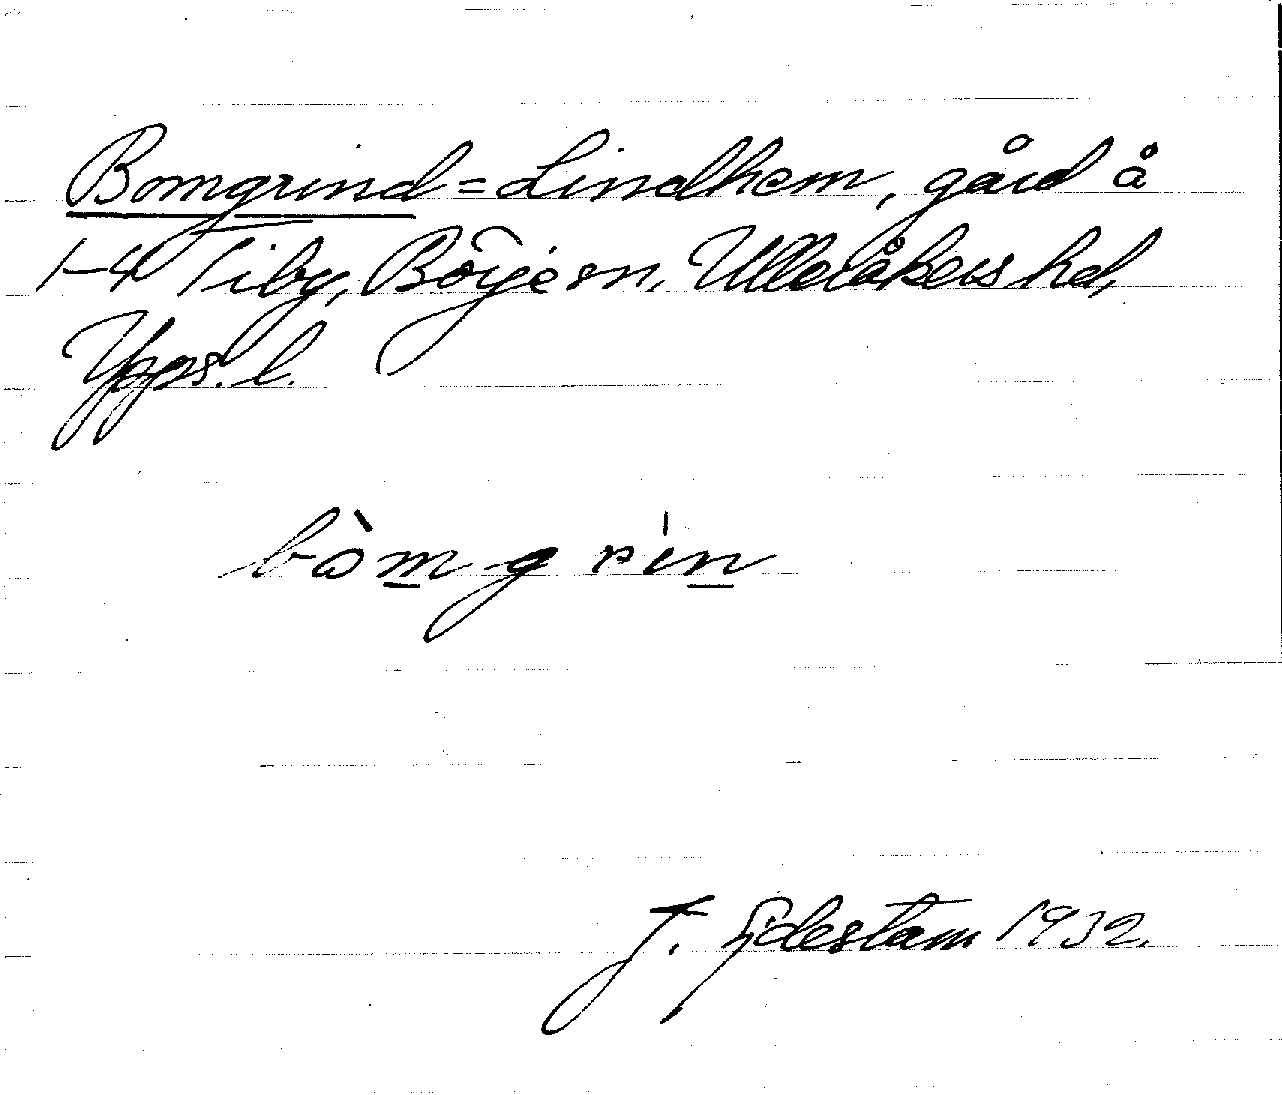 Bomgrind = Lindhem, gård å
1-4 Tiby, Börje sn, Ulleråkers hd,
Upps. l.
bòmgrin
J. Sjdestam 1932.